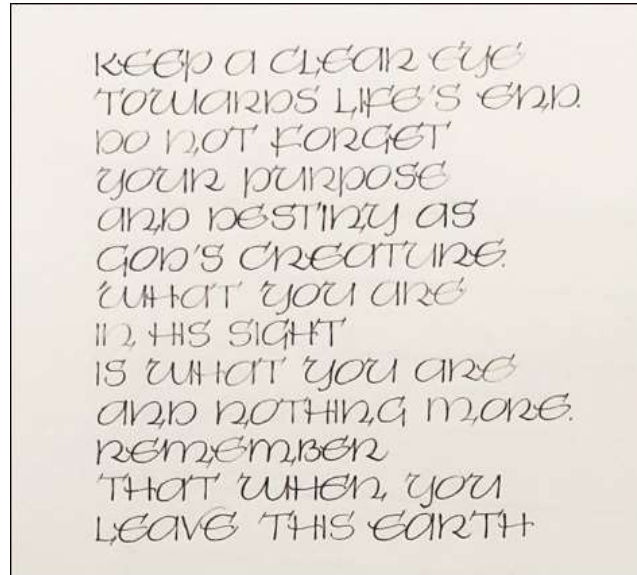 KEEP A CLEAR EYE
TOWARDS LIFE'S END.
DO NOT FORGET
YOUR PURPOSE
AND DESTINY AS
GOD'S CREATURE.
WHAT YOU ARE
IN HIS SIGHT
IS WHAT YOU ARE
AND NOTHING MORE.
REMEMBER
THAT WHEN YOU
LEAVE THIS EARTH